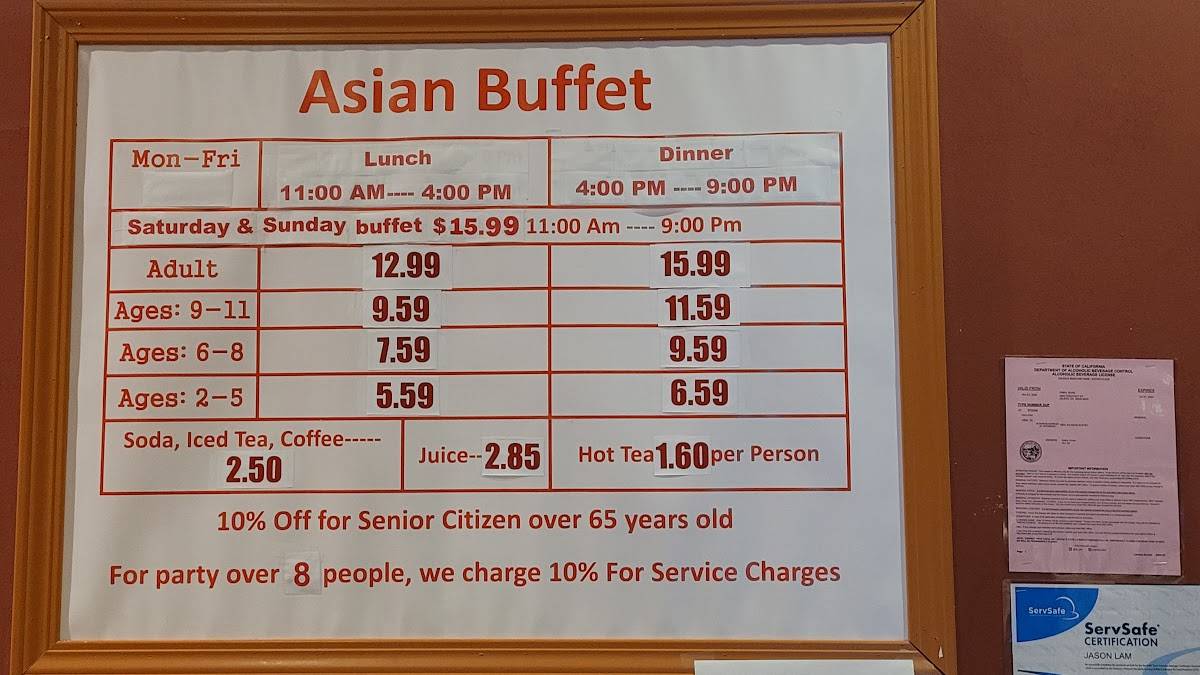 Asian Buffet
Mon-Fri
Lunch
11:00 AM---- 4:00 PM
Dinner
4:00 PM ---- 9:00 PM
Saturday & Sunday buffet $15.99 11:00 Am ---- 9:00 Pm
Adult 12.99 15.99
Ages: 9-11 9.59 11.59
Ages: 6-8 7.59 9.59
Ages: 2-5 5.59 6.59
Soda, Iced Tea, Coffee-----
2.50
Juice--2.85
Hot Tea 1.60 per Person
10% Off for Senior Citizen over 65 years old
For party over 8 people, we charge 10% For Service Charges
STATE OF CALIFORNIA
DEPARTMENT OF ALCOHOLIC BEVERAGE CONTROL
ALCOHOLIC BEVERAGE LICENSE
VALID FROM
EXPIRES
IMPORTANT INFORMATION
ServSafe
ServSafe
CERTIFICATION
JASON LAM